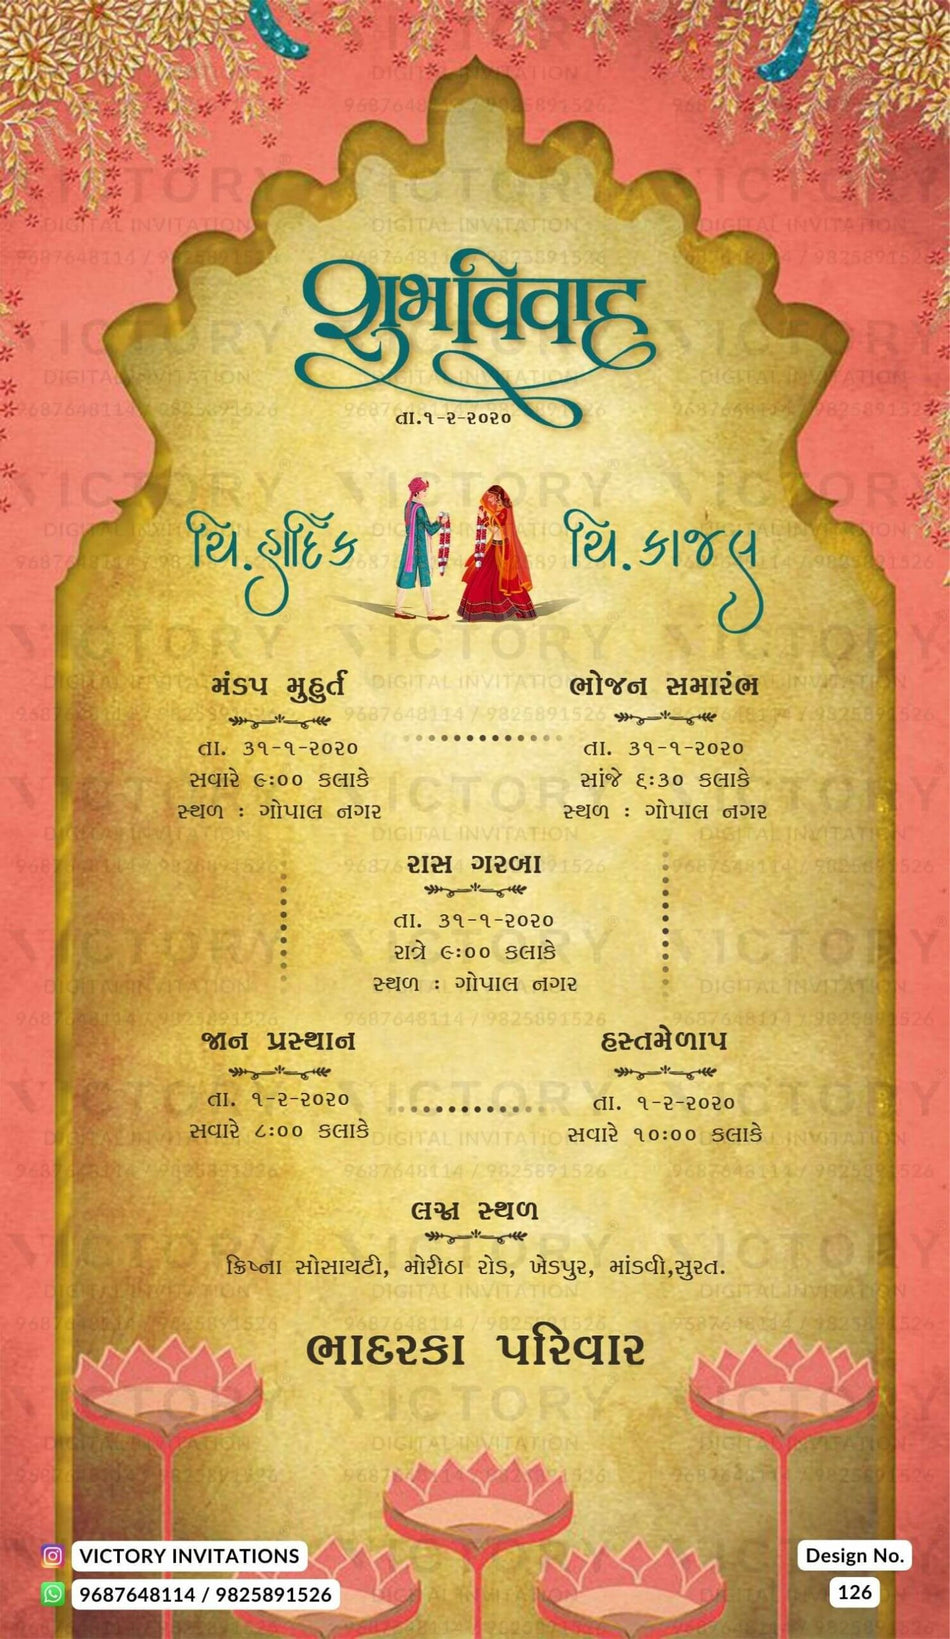 શુભવિવાહ
તા.૧-૨-૨૦૨૦
ચિ.હાર્દિક
ચિ.કાજલ
મંડપ મુહુર્ત
તા. ૩૧-૧-૨૦૨૦
સવારે ૯:૦૦ કલાકે
સ્થળ : ગોપાલ નગર
ભોજન સમારંભ
તા. ૩૧-૧-૨૦૨૦
સાંજે ૬:૩૦ કલાકે
સ્થળ : ગોપાલ નગર
રાસ ગરબા
તા. ૩૧-૧-૨૦૨૦
રાત્રે ૯:૦૦ કલાકે
સ્થળ : ગોપાલ નગર
જાન પ્રસ્થાન
તા. ૧-૨-૨૦૨૦
સવારે ૮:૦૦ કલાકે
હસ્તમેળાપ
તા. ૧-૨-૨૦૨૦
સવારે ૧૦:૦૦ કલાકે
લગ્ન સ્થળ
ક્રિષ્ના સોસાયટી, મોરીઠા રોડ, ખેડપુર, માંડવી,સુરત.
ભાદરકા પરિવાર
VICTORY INVITATIONS
9687648114 / 9825891526
Design No.
126
VICTORY
DIGITAL INVITATION
9687648114 / 9825891526